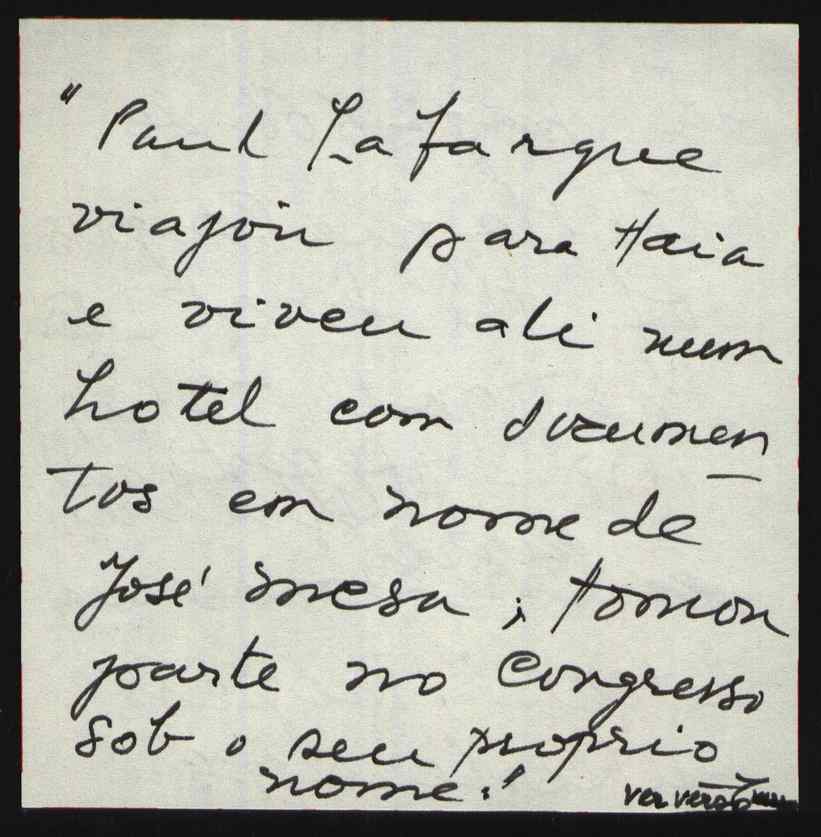 " Paul Lafargue
viajou para Haia
e viveu ali num
hotel com documen
tos em nome de
José Mesa; tomou
parte no Congresso
sob o seu proprio
nome."
ver verso